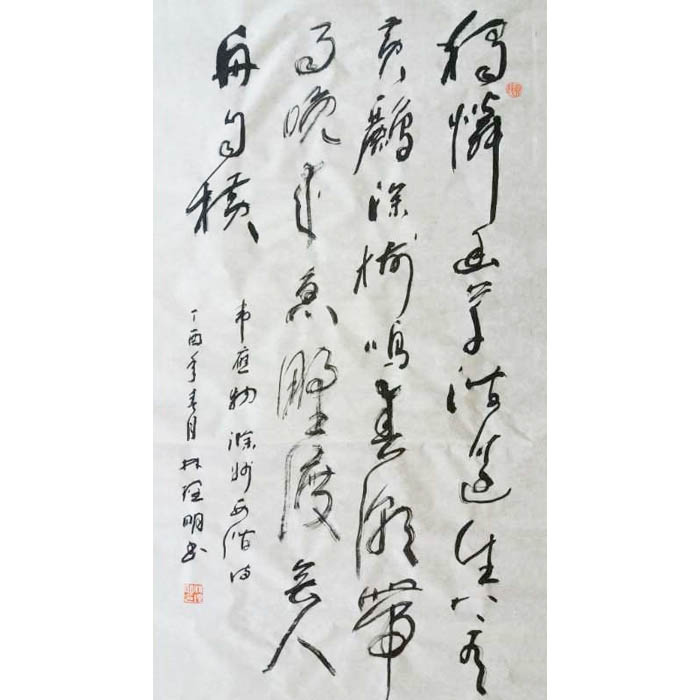 獨憐幽草澗邊生上有
黃鸝深樹鳴春潮帶
雨晚來急野渡無人
舟自橫
韋應物滁州西澗詩
丁酉年春月林明書